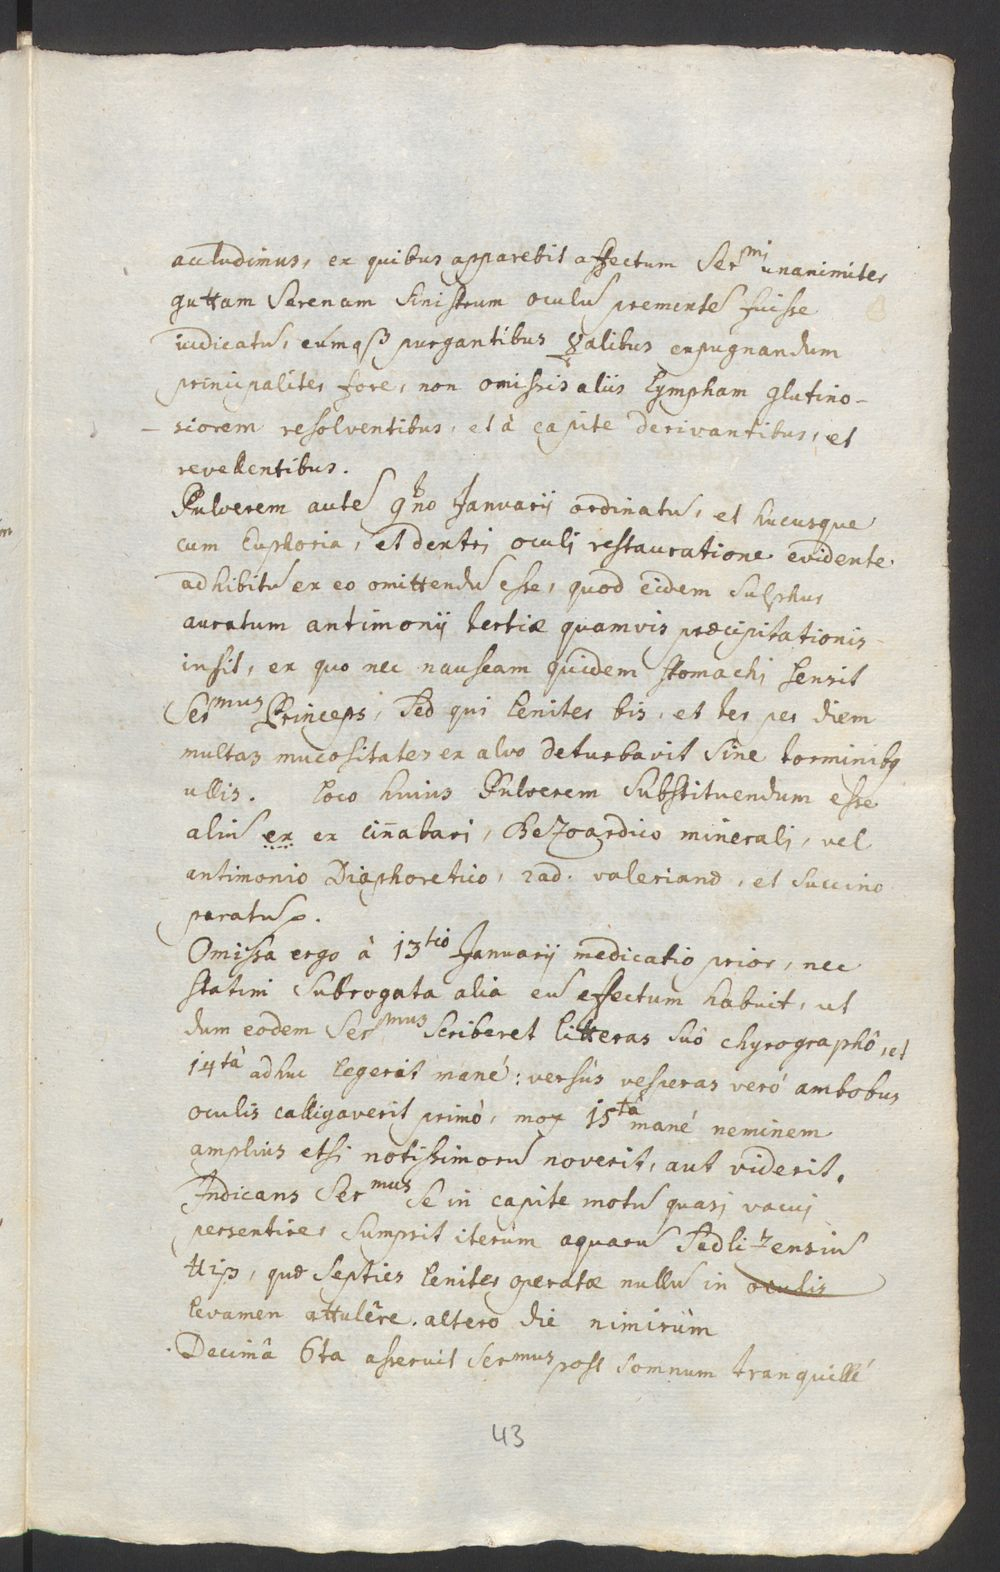 accludimus, ex quibus apparebit affectum Ser^mi unanimiter
guttam Serenam Sinistrum oculũ prementẽ fuisse
iudicatũ, eúmqß purgantibus ☿alibus expugnandum
principaliter fore, non omissis aliis lympham glutino-
-siorem resolventibus, et à capite derivantibus, et
revellentibus.
Pulverem autẽ 9no Januarij ordinatũ, et hucusque
cum Euphoria, et dextri oculi restauratione evidente
adhibitũ ex eo omittendũ esse, quod eidem Sulphur
auratum antimonij tertiæ quamvis præcipitationis
insit, ex quo nec nauseam quidem stomachi sensit
Ser^mus Princeps, sed qui leniter bis, et ter per diem
multas mucositates ex alvo deturbavit sine torminibq
ullis. Loco huius Pulverem Substituendum esse
aliũ ex ex cin̄abari, Bezoardico minerali, vel
antimonio Diaphoretico, rad. valerianæ, et Succino
paratũ.
Omissa ergo à 13^tio Januarij medicatio prior, nec
statim Subrogata alia eũ effectum habuit, ut
dum eodem Ser^mus scriberet litteras suô chyrographô, et
14^tâ adhuc legerit mané: versùs vesperas veró ambobus
oculis calligaverit primò, mox 15^tâ mané neminem
amplius etsi notissimorũ noverit, aut viderit.
Indicans Ser^mus se in capite motũ quasi vacui
persentire, Sumpsit iterùm aquarũ Sedlizensiũ
℔iß, quæ Septies leniter operatæ nullũ in oculis
levamen attulêre. altero die nimirùm
Decimâ 6ta asseruit Ser^mus post somnum tranquillé
43